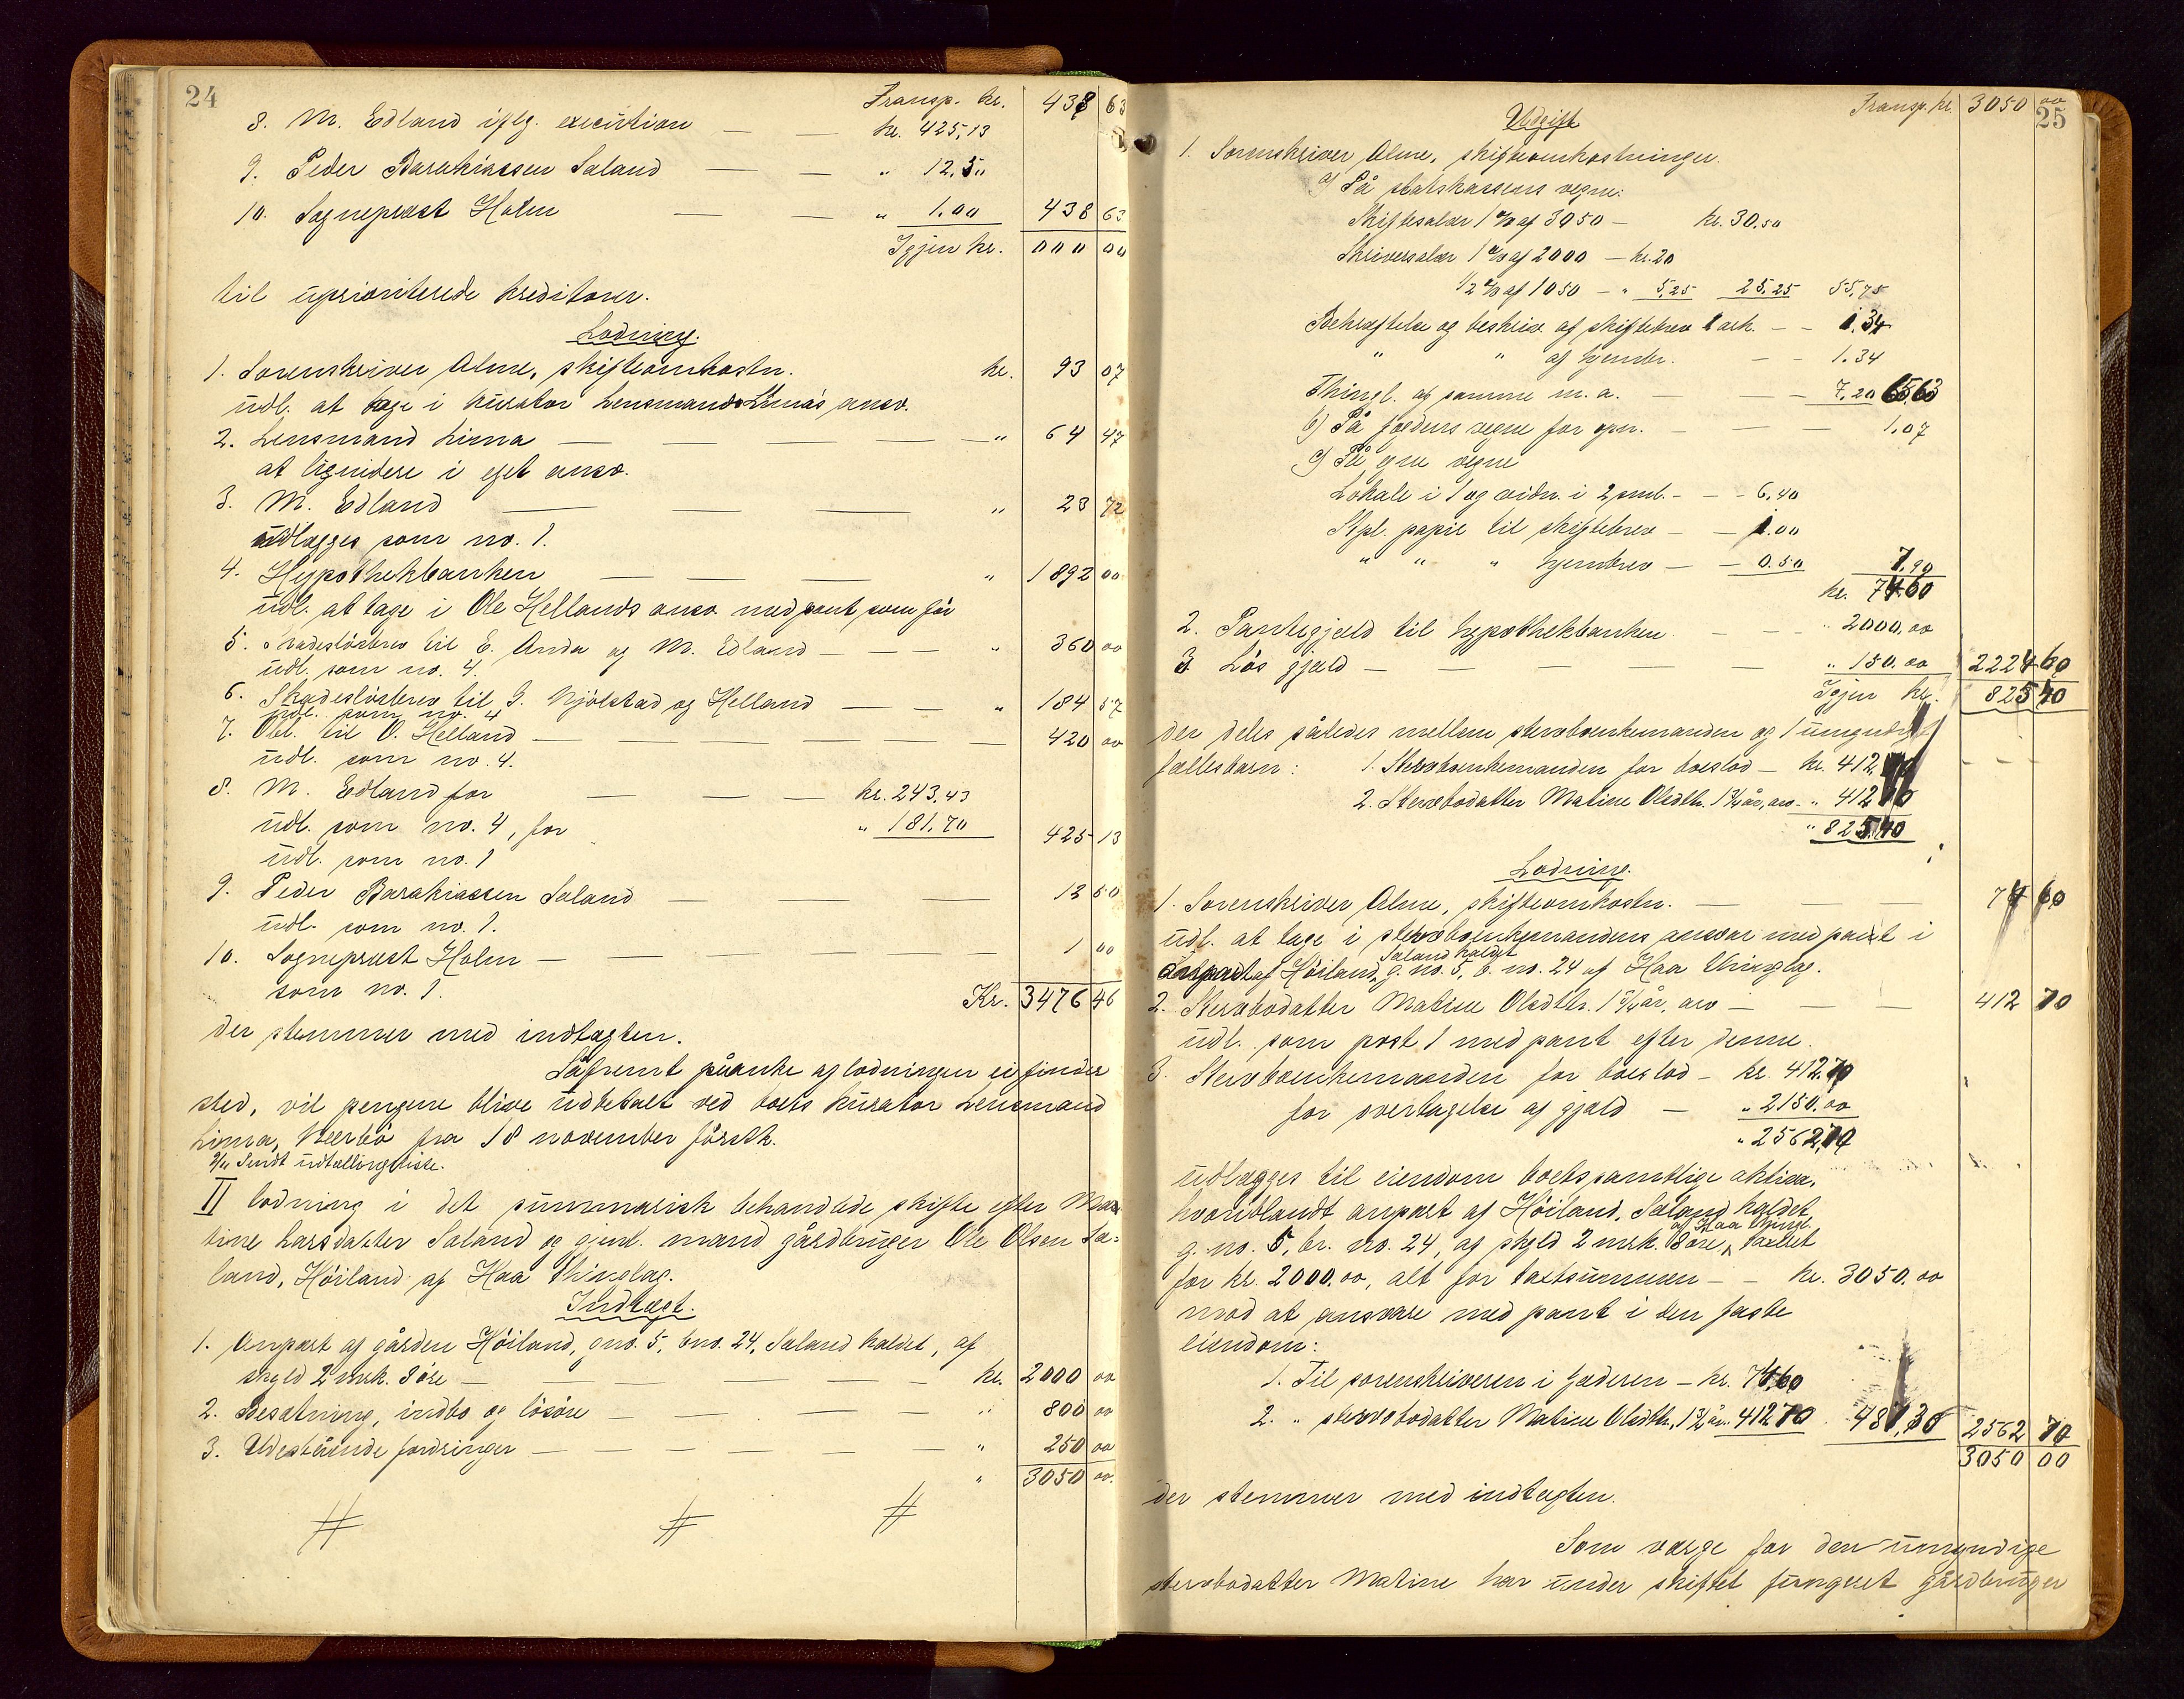 24
Transp. kr. 438 63
8. M. Edland iflg. execution — — kr. 425,13
9. Peder Barakiassen Saland — — " 12.50
10. Sogneprest Holm — — " 1.00 438 63
Igjen kr. 000 00
til uprioriterede kreditorer.
Lodning.
1. Sorenskriver Alme, skifteomkostn. kr. 93 07
udl. at tage i kurator Lensmand Limas ansv.
2. Lensmand Lima — — — — " 64 47
at liquidere i eget ansv.
3. M. Edland — — " 23 72
udlægges som no. 1.
4. Hypothekbanken — — — " 1892 00
udl. at tage i Ole Hellands ansv. med pant som før
5. Skadesløsbrev til E. Anda og M. Edland — — — " 360 00
udl. som no. 4.
6. Skadesløsbrev til G. Njølstad og Helland — — " 184 57
udl. som no. 4
7. Obl. til O. Helland — — — — — 420 00
udl. som no. 4.
8. M. Edland for — — — kr. 243,43
udl. som no. 4, for " 181.70 425 13
udl. som no. 1
9. Peder Barakiassen Saland — — — 12 50
udl. som no. 1.
10. Sogneprest Holm — — — — — 1 00
som no. 1. Kr. 3476 46
der stemmer med indtægten.
Såfremt påanke af lodningen ei finder
sted, vil pengene blive udbetalt ved boets kurator Lensmand
Lima, Nærbø fra 18 november førstk.
Sendt udtællingsliste.
II lodning i det summarisk behandlede skifte efter Ma-
tine Larsdatter Saland og gjenl. mand gårdbruger Ole Olsen Sa-
land, Høiland af Haa thinglag.
Indtægt.
1. Anpart af gården Høiland, gno. 5, bno. 24, Saland kaldet, af
skyld 2 mrk. 8 øre — — — — — kr. 2000 00
2. Besætning, indbo og løsøre — — — — " 800 00
3. Udestående fordringer — — — — " 250 00
" 3050 00.
25
Transp. kr. 3050 00
Udgift
1. Sorenskriver Alme, skifteomkostninger.
a) På statskassens vegne:
Skiftesalær 1 % af 3050 — kr. 30.50
Skriversalær 1 % af 2000 — kr. 20
1/2 % af 1050 — " 5,25 25.25 55,75
Bekræftelse og beskriv. af skiftebrev 1 ark. — — 1.34
" " af hjembr. — — 1.34
Thingl. af samme m. a. — — — 7.20 65,63
b) På fogdens vegne for opn. — — — 1.07
c) På egne vegne
Lokale i 1 og vidn. i 2 saml. — — 6,40
Stpl. papir til skiftebrev — — 1.00
" " " hjembrev — — 0.50 7,90
kr. 74.60
2. Pantegjæld til hypothekbanken — — " 2000,00
3 Løs gjæld — — — — " 150.00 2224 60
Igjen kr. 825 40
der deles således mellem stervboenkemanden og 1 umyndigt
fællesbarn: 1. Stervboenkemanden for boeslod — kr. 412,70
2. Stervbodatter Matine Olsdtr. 1 3/4 år, arv — " 412 70
" 825.40
Lodning.
1. Sorenskriver Alme, skifteomkostn. — — — 74 60
udl. at tage i stervboenkemandens ansvar med pant i
Anpart af Høiland, Saland kaldet g. no. 5, b. no. 24 af Haa thinglag.
2. Stervbodatter Matine Olsdtr. 1 3/4 år, arv — — — 412 70
udl. som post 1 med pant efter denne.
3. Stervboenkemanden for boeslod — kr. 412,70
for overtagelse af gjæld — " 2150.00
" 2562,70
udlægges til eiendom boets samtlige aktiva,
hvoriblandt anpart af Høiland, Saland kaldet,
g. no. 5, br. no. 24, af skyld 2 mrk. 8 øre, af Haa thingl. taxeret
for kr. 2000.00, alt for taxtsummen — — kr. 3050.00
mod at ansvare med pant i den faste
eiendom:
1. Til sorenskriveren i Jæderen — kr. 74,60
2. " stervbodatter Matine Olsdtr., 1 3/4 år. 412 70 487,30 2562 70
3050 00
der stemmer med indtægten.
Som værge for den umyndige
stervbodatter Matine har under skiftet fungeret gårdbruger